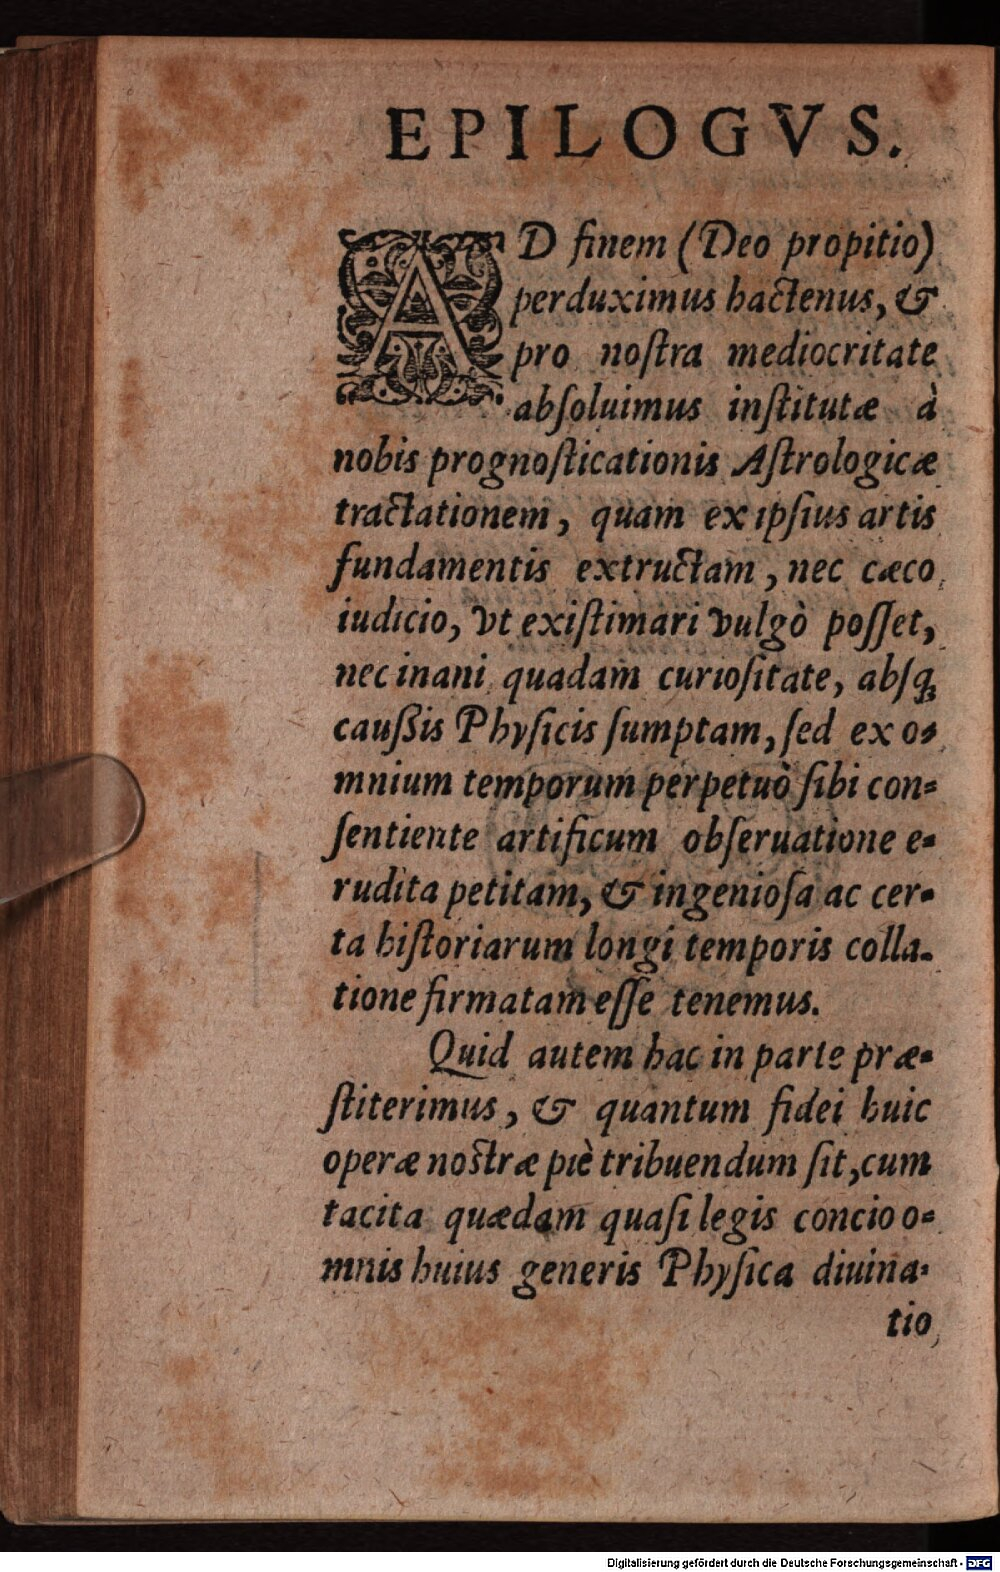 EPILOGVS.
AD finem (Deo propitio)
perduximus hactenus, &
pro noſtra mediocritate
abſoluimus inſtitutæ à
nobis prognoſticationis Aſtrologicæ
tractationem, quam ex ipſius artis
fundamentis extructam, nec cæco
iudicio, vt exiſtimari vulgò poſſet,
nec inani quadam curioſitate, abſq;
cauſsis Phyſicis ſumptam, ſed ex o-
mnium temporum perpetuò ſibi con-
ſentiente artificum obſeruatione e-
rudita petitam, & ingenioſa ac cer-
ta hiſtoriarum longi temporis colla-
tione firmatam eſſe tenemus.
Quid autem hac in parte præ-
ſtiterimus, & quantum fidei huic
operæ noſtræ piè tribuendum ſit, cum
tacita quædam quaſi legis concio o-
mnis huius generis Phyſica diuina-
tio
Digitalisierung gefördert durch die Deutsche Forschungsgemeinschaft - DFG